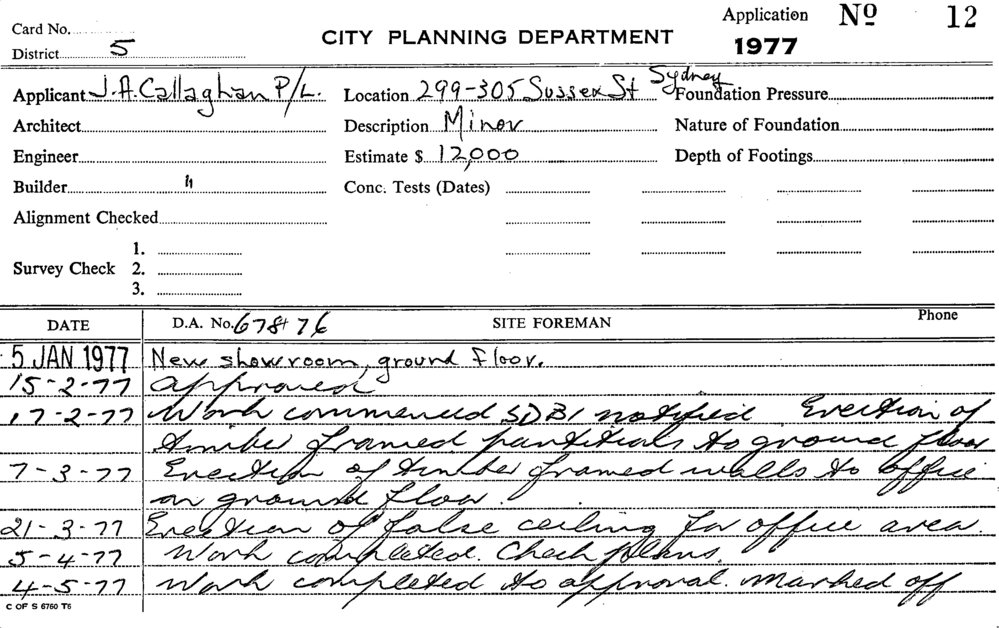 Card No.
Application No 12
District 5
CITY PLANNING DEPARTMENT
1977
Applicant J.A.Callaghan P/L. Location 299-305 Sussex St Sydney Foundation Pressure
Architect Description Minor Nature of Foundation
Engineer Estimate $ 12,000 Depth of Footings
Builder " Conc. Tests (Dates)
Alignment Checked
Survey Check
1.
2.
3.
DATE D.A. No. 678/76 SITE FOREMAN Phone
5 JAN 1977 New showroom, ground floor.
15-2-77 approved
17-2-77 Work commenced SDBI notified Erection of
timber framed partitions to ground floor
7-3-77 Erection of timber framed walls to office
on ground floor.
21-3-77 Erection of false ceiling for office area.
5-4-77 Work completed. Check plans.
4-5-77 Work completed to approval. marked off
C OF S 6760 T6